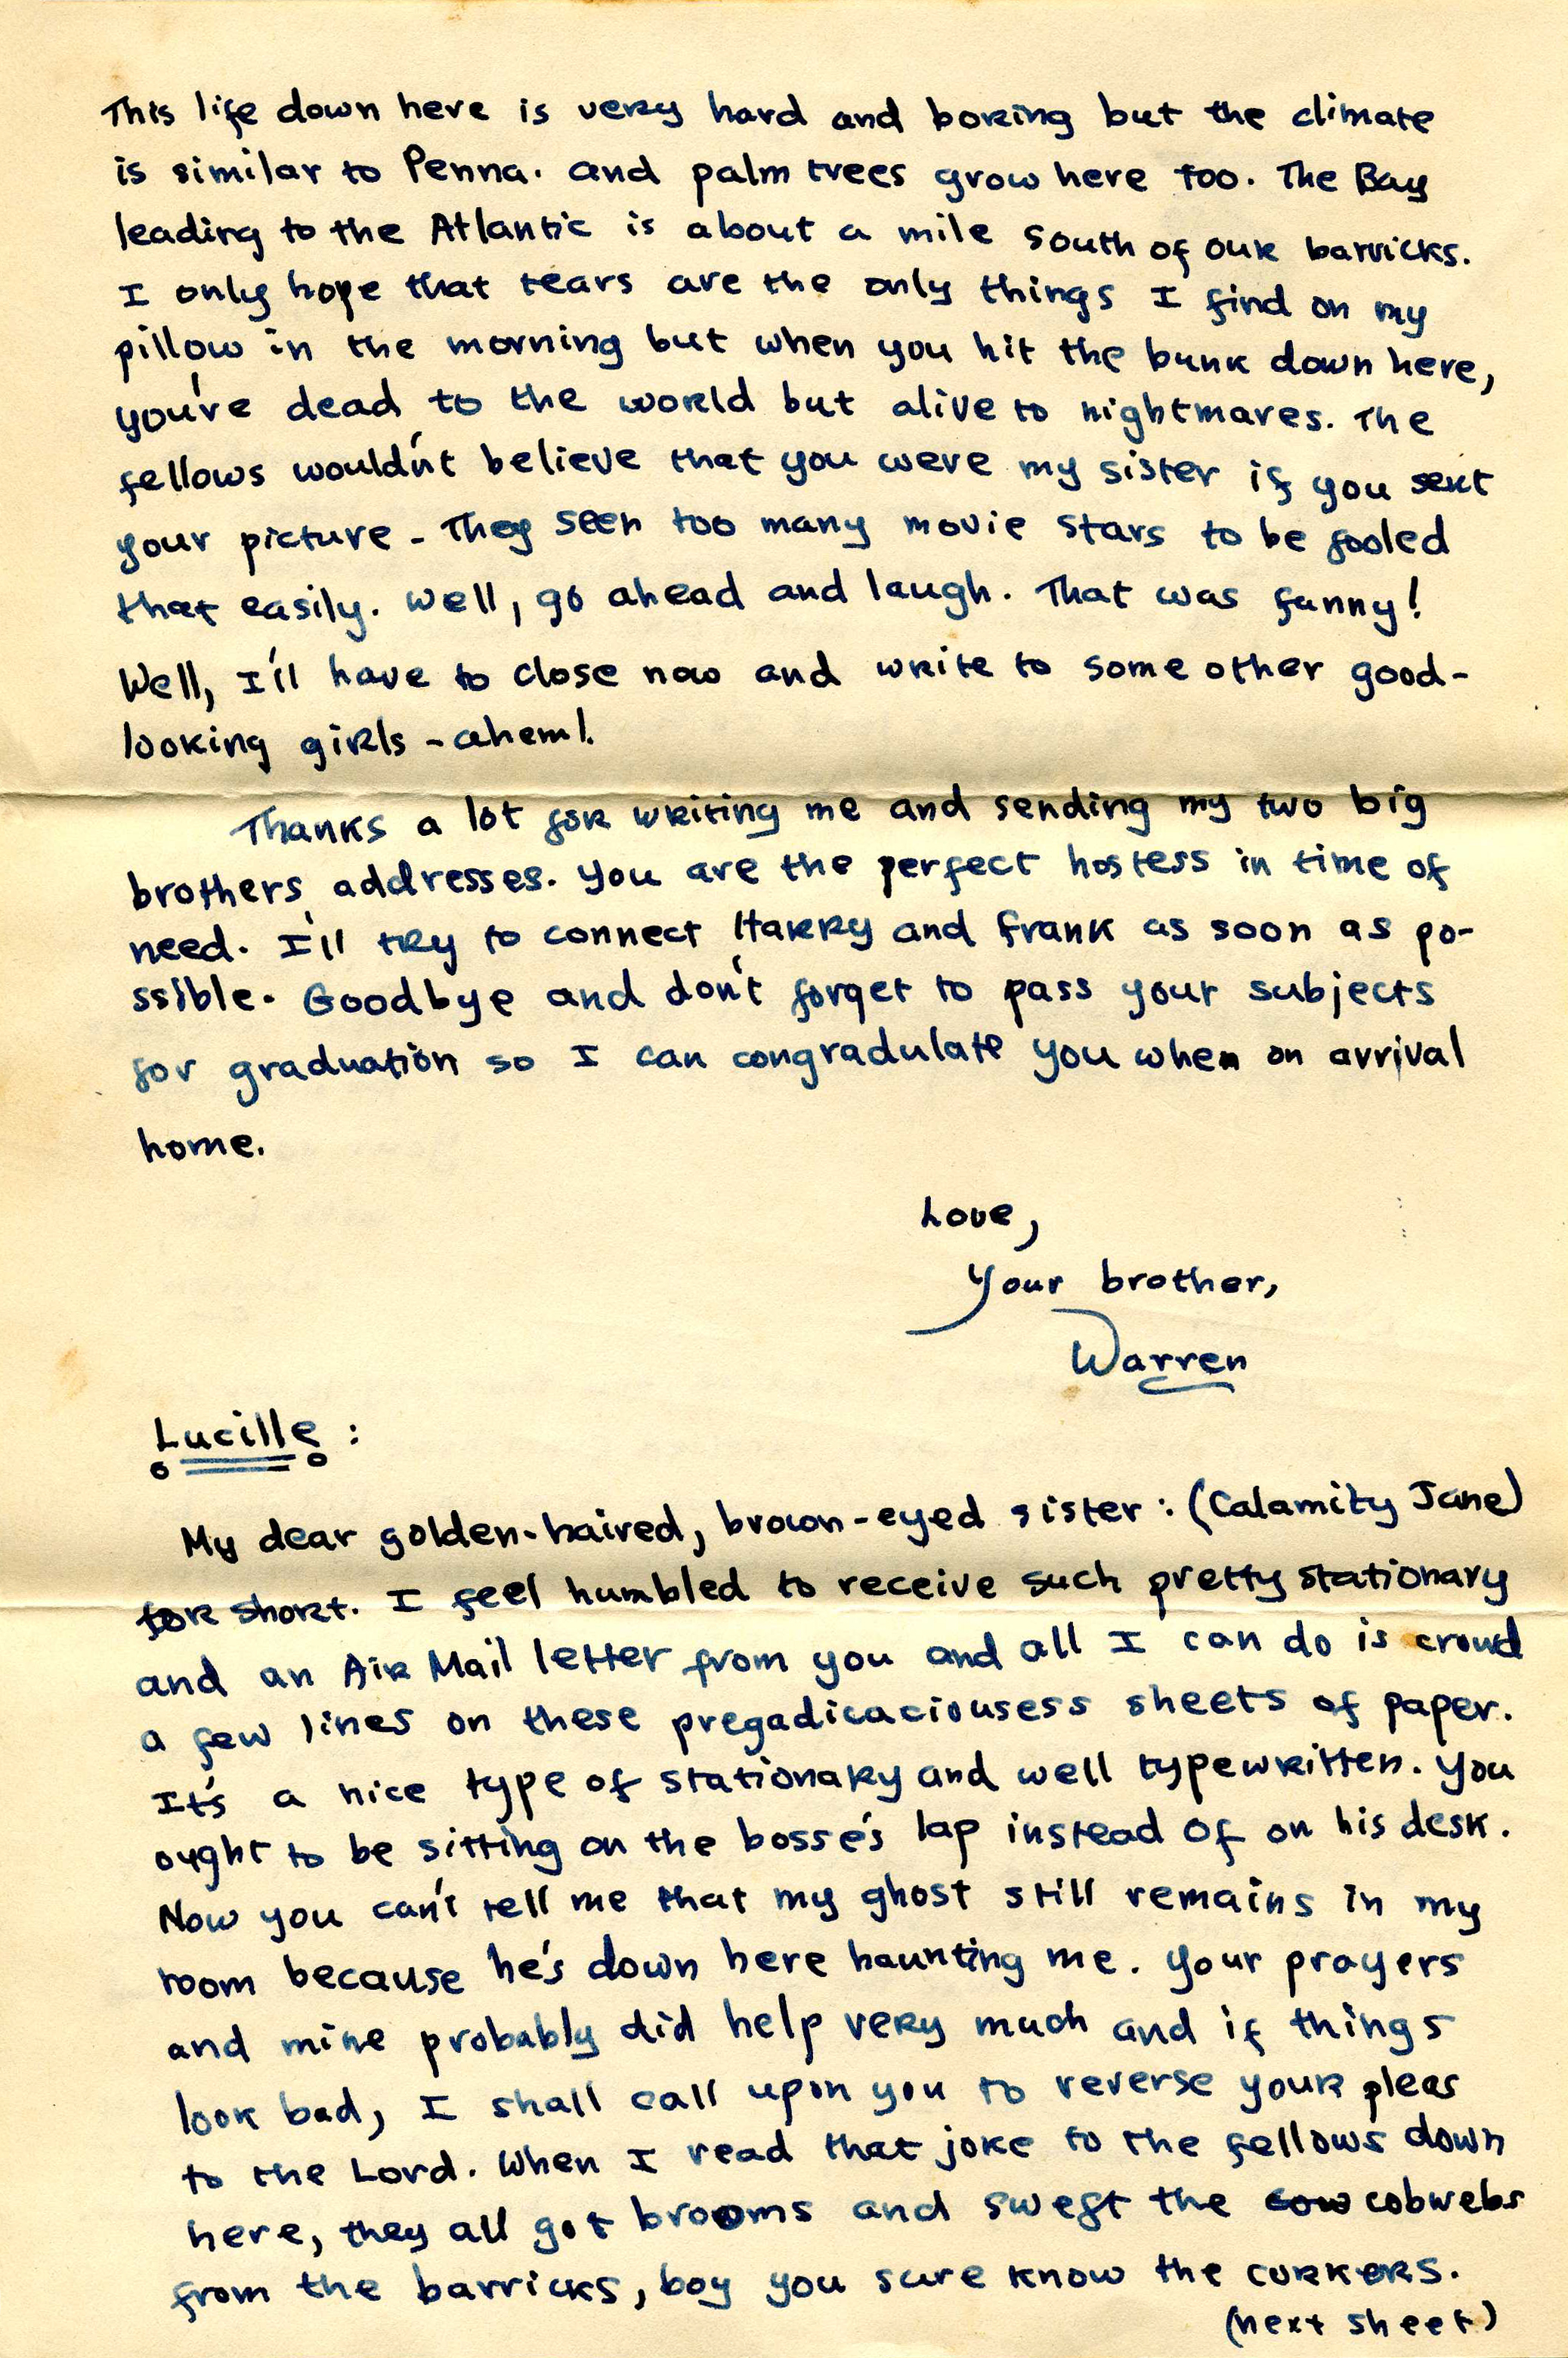 This life down here is very hard and boring but the climate
is similar to Penna. and palm trees grow here too. The Bay
leading to the Atlantic is about a mile south of our barricks.
I only hope that tears are the only things I find on my
pillow in the morning but when you hit the bunk down here,
you're dead to the world but alive to nightmares. The
fellows would'nt believe that you were my sister if you sent
your picture - They seen too many movie stars to be fooled
that easily. Well, go ahead and laugh. That was funny!
Well, I'll have to close now and write to some other good-
looking girls - ahem!
Thanks a lot for writing me and sending my two big
brothers addresses. You are the perfect hostess in time of
need. I'll try to connect Harry and Frank as soon as po-
ssible. Goodbye and don't forget to pass your subjects
for graduation so I can congradulate you when on arrival
home.
Love,
Your brother,
Warren
Lucille :
My dear golden-haired, brown-eyed sister : (Calamity Jane)
for short. I feel humbled to receive such pretty stationary
and an Air Mail letter from you and all I can do is crowd
a few lines on these pregadicaciousess sheets of paper.
It's a nice type of stationary and well typewritten. You
ought to be sitting on the bosse's lap instead of on his desk.
Now you can't tell me that my ghost still remains in my
room because he's down here haunting me. Your prayers
and mine probably did help very much and if things
look bad, I shall call upon you to reverse your pleas
to the Lord. When I read that joke to the fellows down
here, they all got brooms and swept the cow cobwebs
from the barricks, boy you sure know the corkers.
(next sheet)